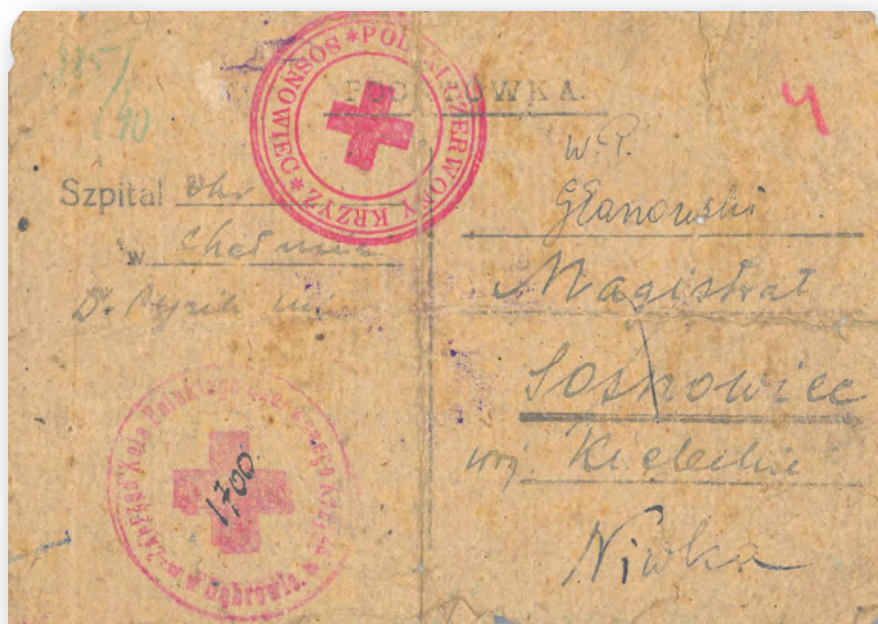 985/40
POCZTÓWKA.
4
SOSNOWIEC * POLSKI CZERWONY KRZYŻ *
Szpital Okr
w Chełmie
Dr.
W. P.
Glanowski
Magistrat
Sosnowiec
woj. Kieleckie
Niwka
Zarząd Koła Polskiego Czerwonego Krzyża
w Dąbrowie
1700